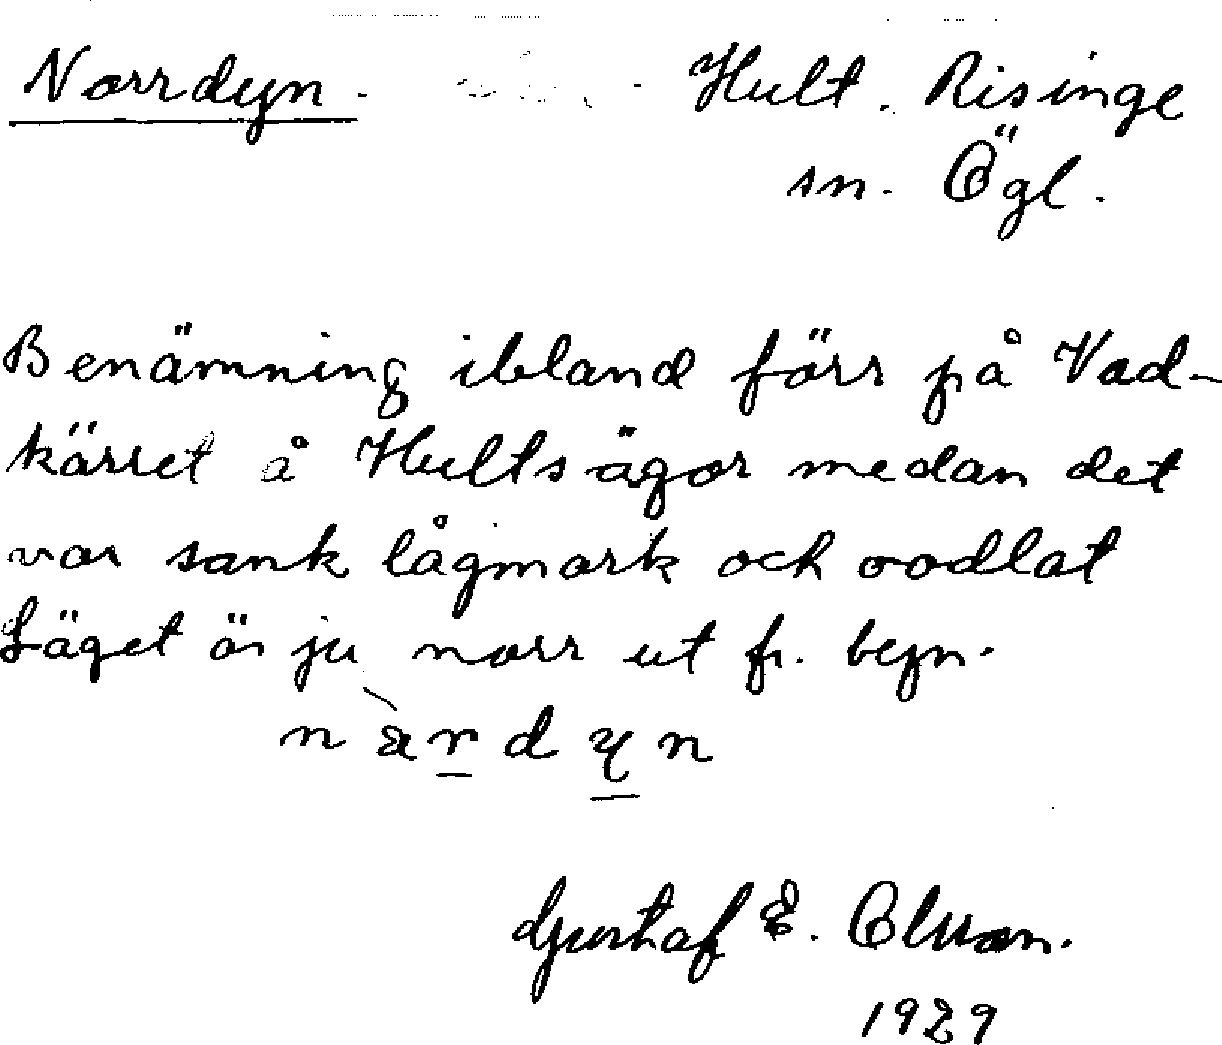 Norrdyn. Hult. Risinge
sn. Ögl.
Benämning ibland förr på Vad-
kärret å Hults ägor medan det
var sank lågmark och oodlat
Läget är ju norr ut fr. byn.
Gustaf E. Olsson.
1929